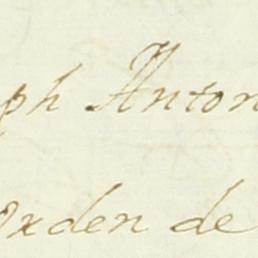 ph Anton
orden de